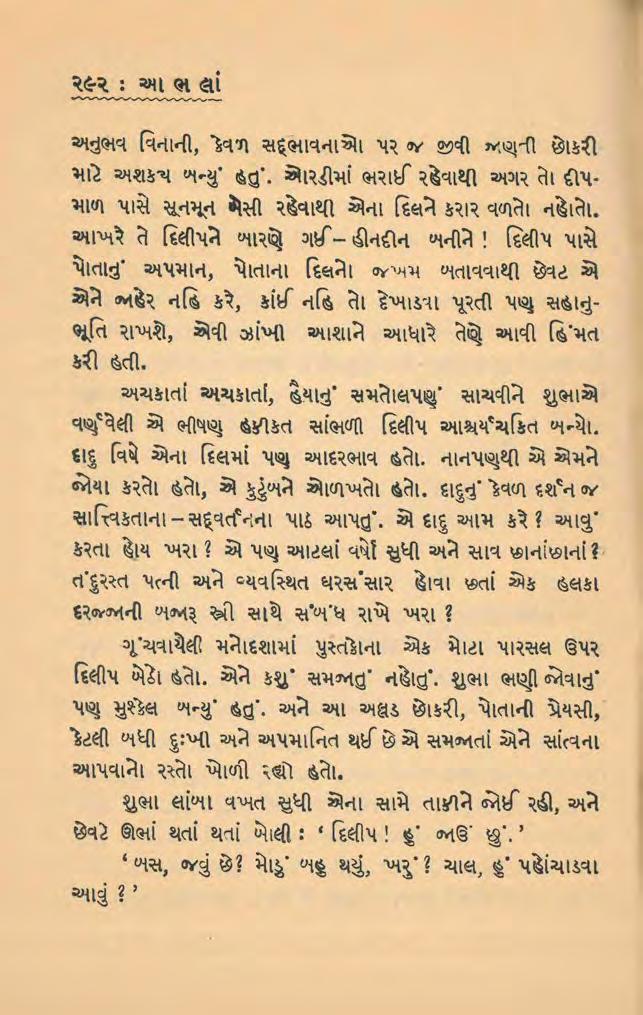 ૨૯૨ : આ ભ લાં
અનુભવ વિનાની, કેવળ સદ્ભાવનાઓ પર જ જીવી જાણતી છોકરી
માટે અશક્ય બન્યું હતું. ઓરડીમાં ભરાઈ રહેવાથી અગર તો દીપ-
માળ પાસે સૂનમૂન બેસી રહેવાથી એના દિલને કરાર વળતો નહોતો.
આખરે તે દિલીપને બારણે ગઈ – હીનદીન બનીને ! દિલીપ પાસે
પોતાનું અપમાન, પોતાના દિલનો જખમ બતાવવાથી છેવટ એ
એને જાહેર નહિ કરે, કાંઈ નહિ તો દેખાડવા પૂરતી પણ સહાનુ-
ભૂતિ રાખશે, એવી ઝાંખી આશાને આધારે તેણે આવી હિંમત
કરી હતી.
અચકાતાં અચકાતાં, હૈયાનું સમતોલપણું સાચવીને શુભાએ
વર્ણવેલી એ ભીષણ હકીકત સાંભળી દિલીપ આશ્ચર્યચકિત બન્યો.
દાદુ વિષે એના દિલમાં પણ આદરભાવ હતો. નાનપણથી એ એમને
જોયા કરતો હતો, એ કુટુંબને ઓળખતો હતો. દાદુનું કેવળ દર્શન જ
સાત્ત્વિકતાના – સદ્વર્તનના પાઠ આપતું. એ દાદુ આમ કરે ? આવું
કરતા હોય ખરા ? એ પણ આટલાં વર્ષો સુધી અને સાવ છાનાંછાનાં ?
તંદુરસ્ત પત્ની અને વ્યવસ્થિત ઘરસંસાર હોવા છતાં એક હલકા
દરજ્જાની બજારુ સ્ત્રી સાથે સંબંધ રાખે ખરા ?
ગૂંચવાયેલી મનોદશામાં પુસ્તકોના એક મોટા પારસલ ઉપર
દિલીપ બેઠો હતો. એને કશું સમજાતું નહોતું. શુભા ભણી જોવાનું
પણ મુશ્કેલ બન્યું હતું. અને આ અલ્લડ છોકરી, પોતાની પ્રેયસી,
કેટલી બધી દુઃખી અને અપમાનિત થઈ છે એ સમજાતાં એને સાંત્વના
આપવાનો રસ્તો ખોળી રહ્યો હતો.
શુભા લાંબા વખત સુધી એના સામે તાકીને જોઈ રહી, અને
છેવટે ઊભાં થતાં થતાં બોલી : ‘ દિલીપ ! હું જાઉં છું.’
‘ બસ, જવું છે? મોડું બહુ થયું, ખરું ? ચાલ, હું પહોંચાડવા
આવું ? ’